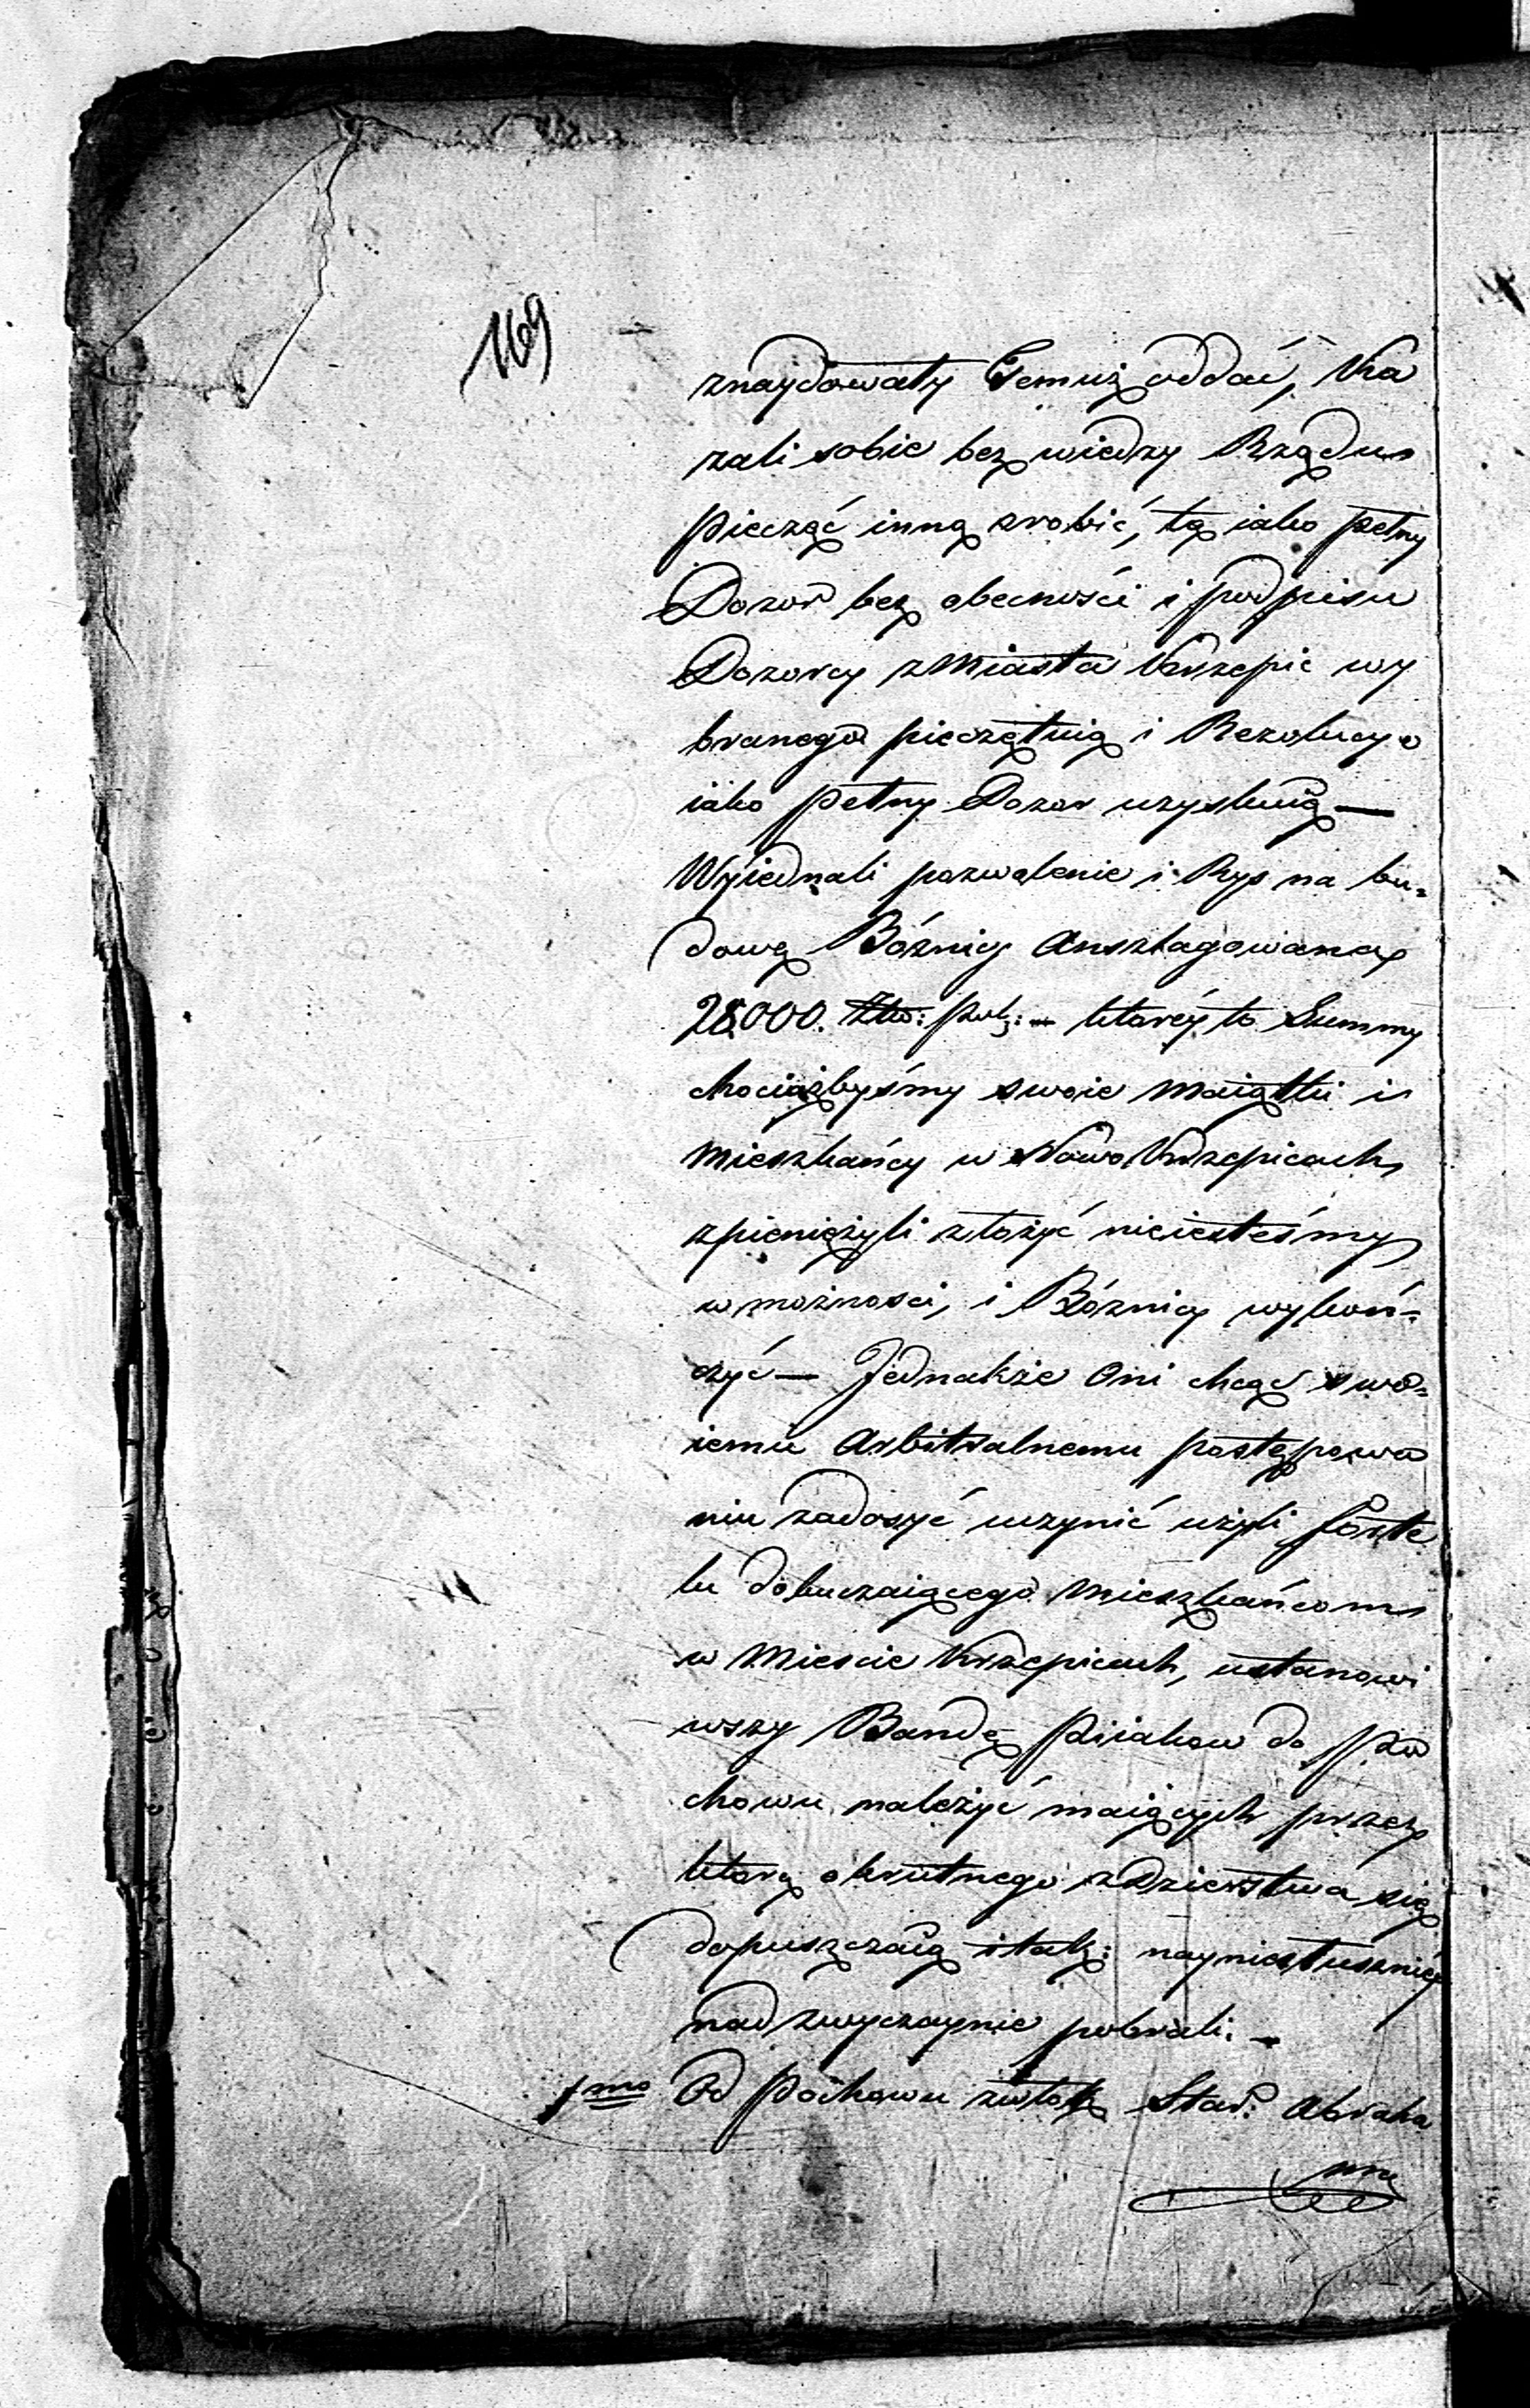 169
znaydowały Temuż oddać, Ka
zali sobie bez wiedzy Rządu
pieczęć inną zrobić, tę iako pełny
Dozór bez obecności i podpisu
Dozorcy z Miasta Krzepic wy
branego pieczętuią i Rezolucye
iako pełny Dozor uzyskuią —
Wyiednali pozwolenie i Rys na bu-
dowę Bóżnicy Anszlagowaney
28000. Złto: pol: — któréy to Summy
chociażbyśmy swoie Maiątki i
Mieszkańcy w Nowo Krzepicach
zpieniężyli złożyć nieiesteśmy
w możności, i Bóżnicy wykoń-
czyć — Jednakże Oni chcąc swo-
iemu Arbitralnemu postępowa
niu zadosyć uczynić użyli forte
lu dokuczaiącego Mieszkańcom
w Mieście Krzepicach, ustanowi
wszy Bandę Piiakow do Po
chowu należyć maiących przez
którą okrutnego zdzierstwa się
dopuszczaią i tak: nayniesłuszniey
nadzwyczaynie pobrali. —
1mo Od Pochowu zwłok Star: Abraha
ma